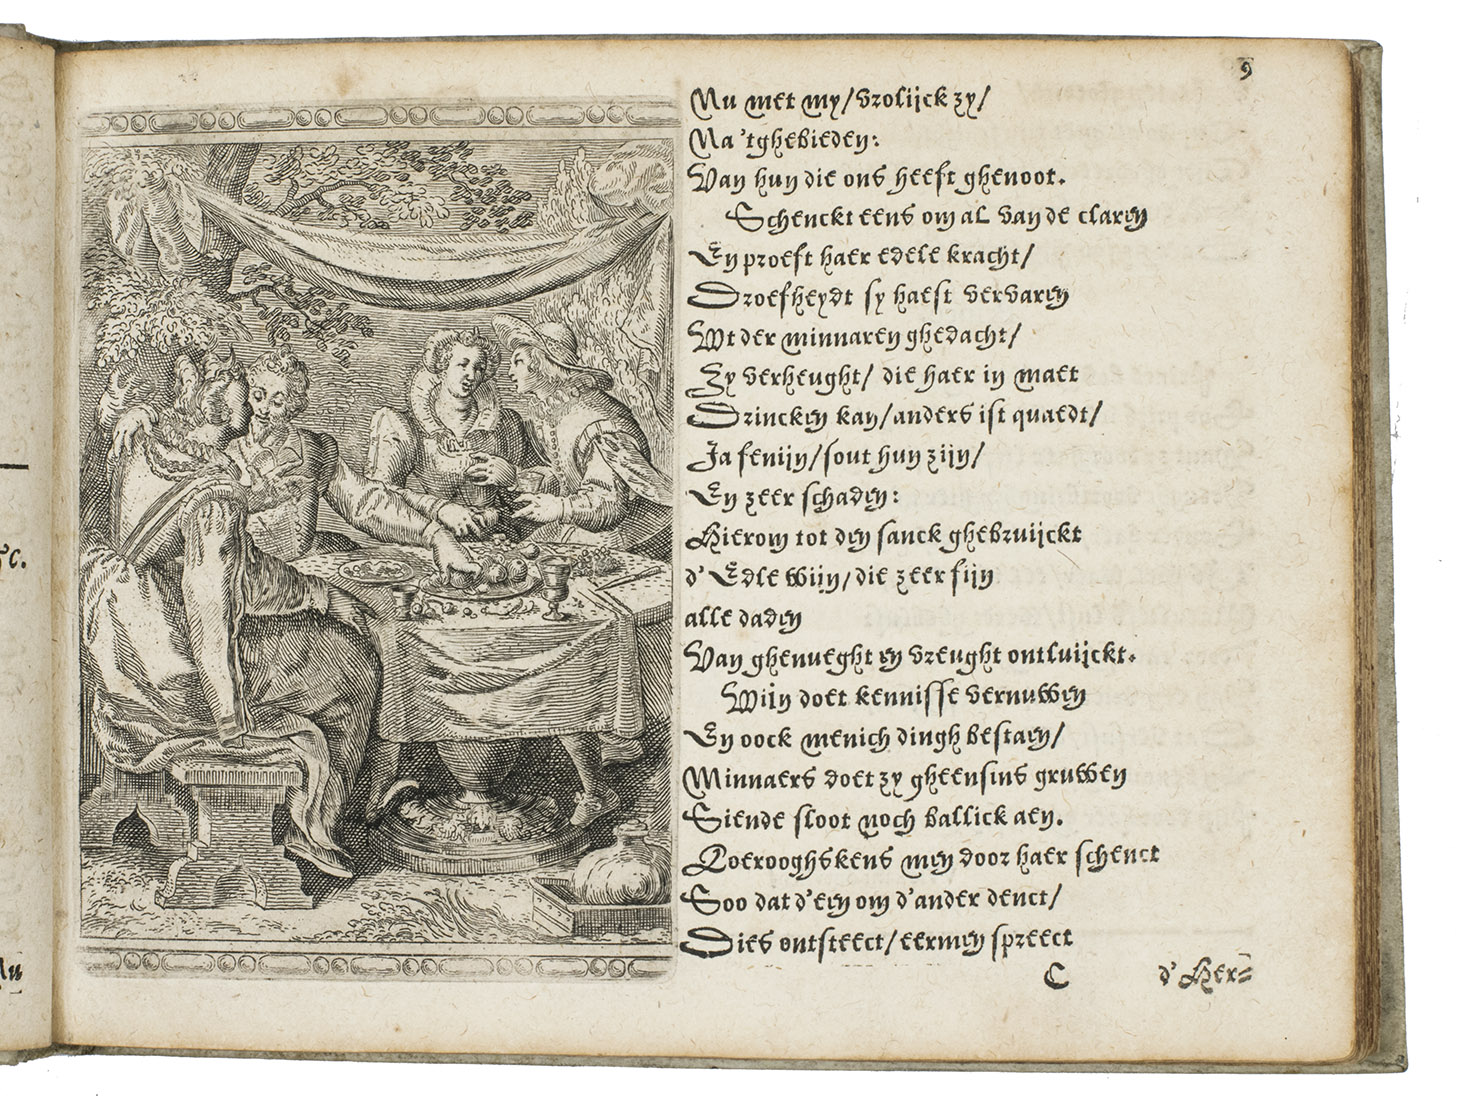 9
Nu met my/ vrolijck zy/
Na 'tghebieden:
Van hun die ons heeft ghenoot.
Schenckt eens om al van de claren
En proeft haer edele kracht/
Droefheydt sy haest vervaren
Wt der minnaren ghedacht/
Zy verheught/ die haer in maet
Drincken kan/ anders ist quaedt/
Ja fenijn/ sout hun zijn/
En zeer schaden:
Hierom tot den sanck ghebruijckt
d'Edle wijn/ die zeer fijn
alle daden
Van ghenueght en vreught ontluijckt.
Wijn doet kennisse vernuwen
En oock menich dingh bestaen/
Minnaers doet zy gheensins gruwen
Siende sloot noch ballick aen.
Loerooghskens men door haer schenct
Soo dat d'een om d'ander denct/
Dies ontsteect/ eermen spreect
C
d'Her=
&c.
Nu